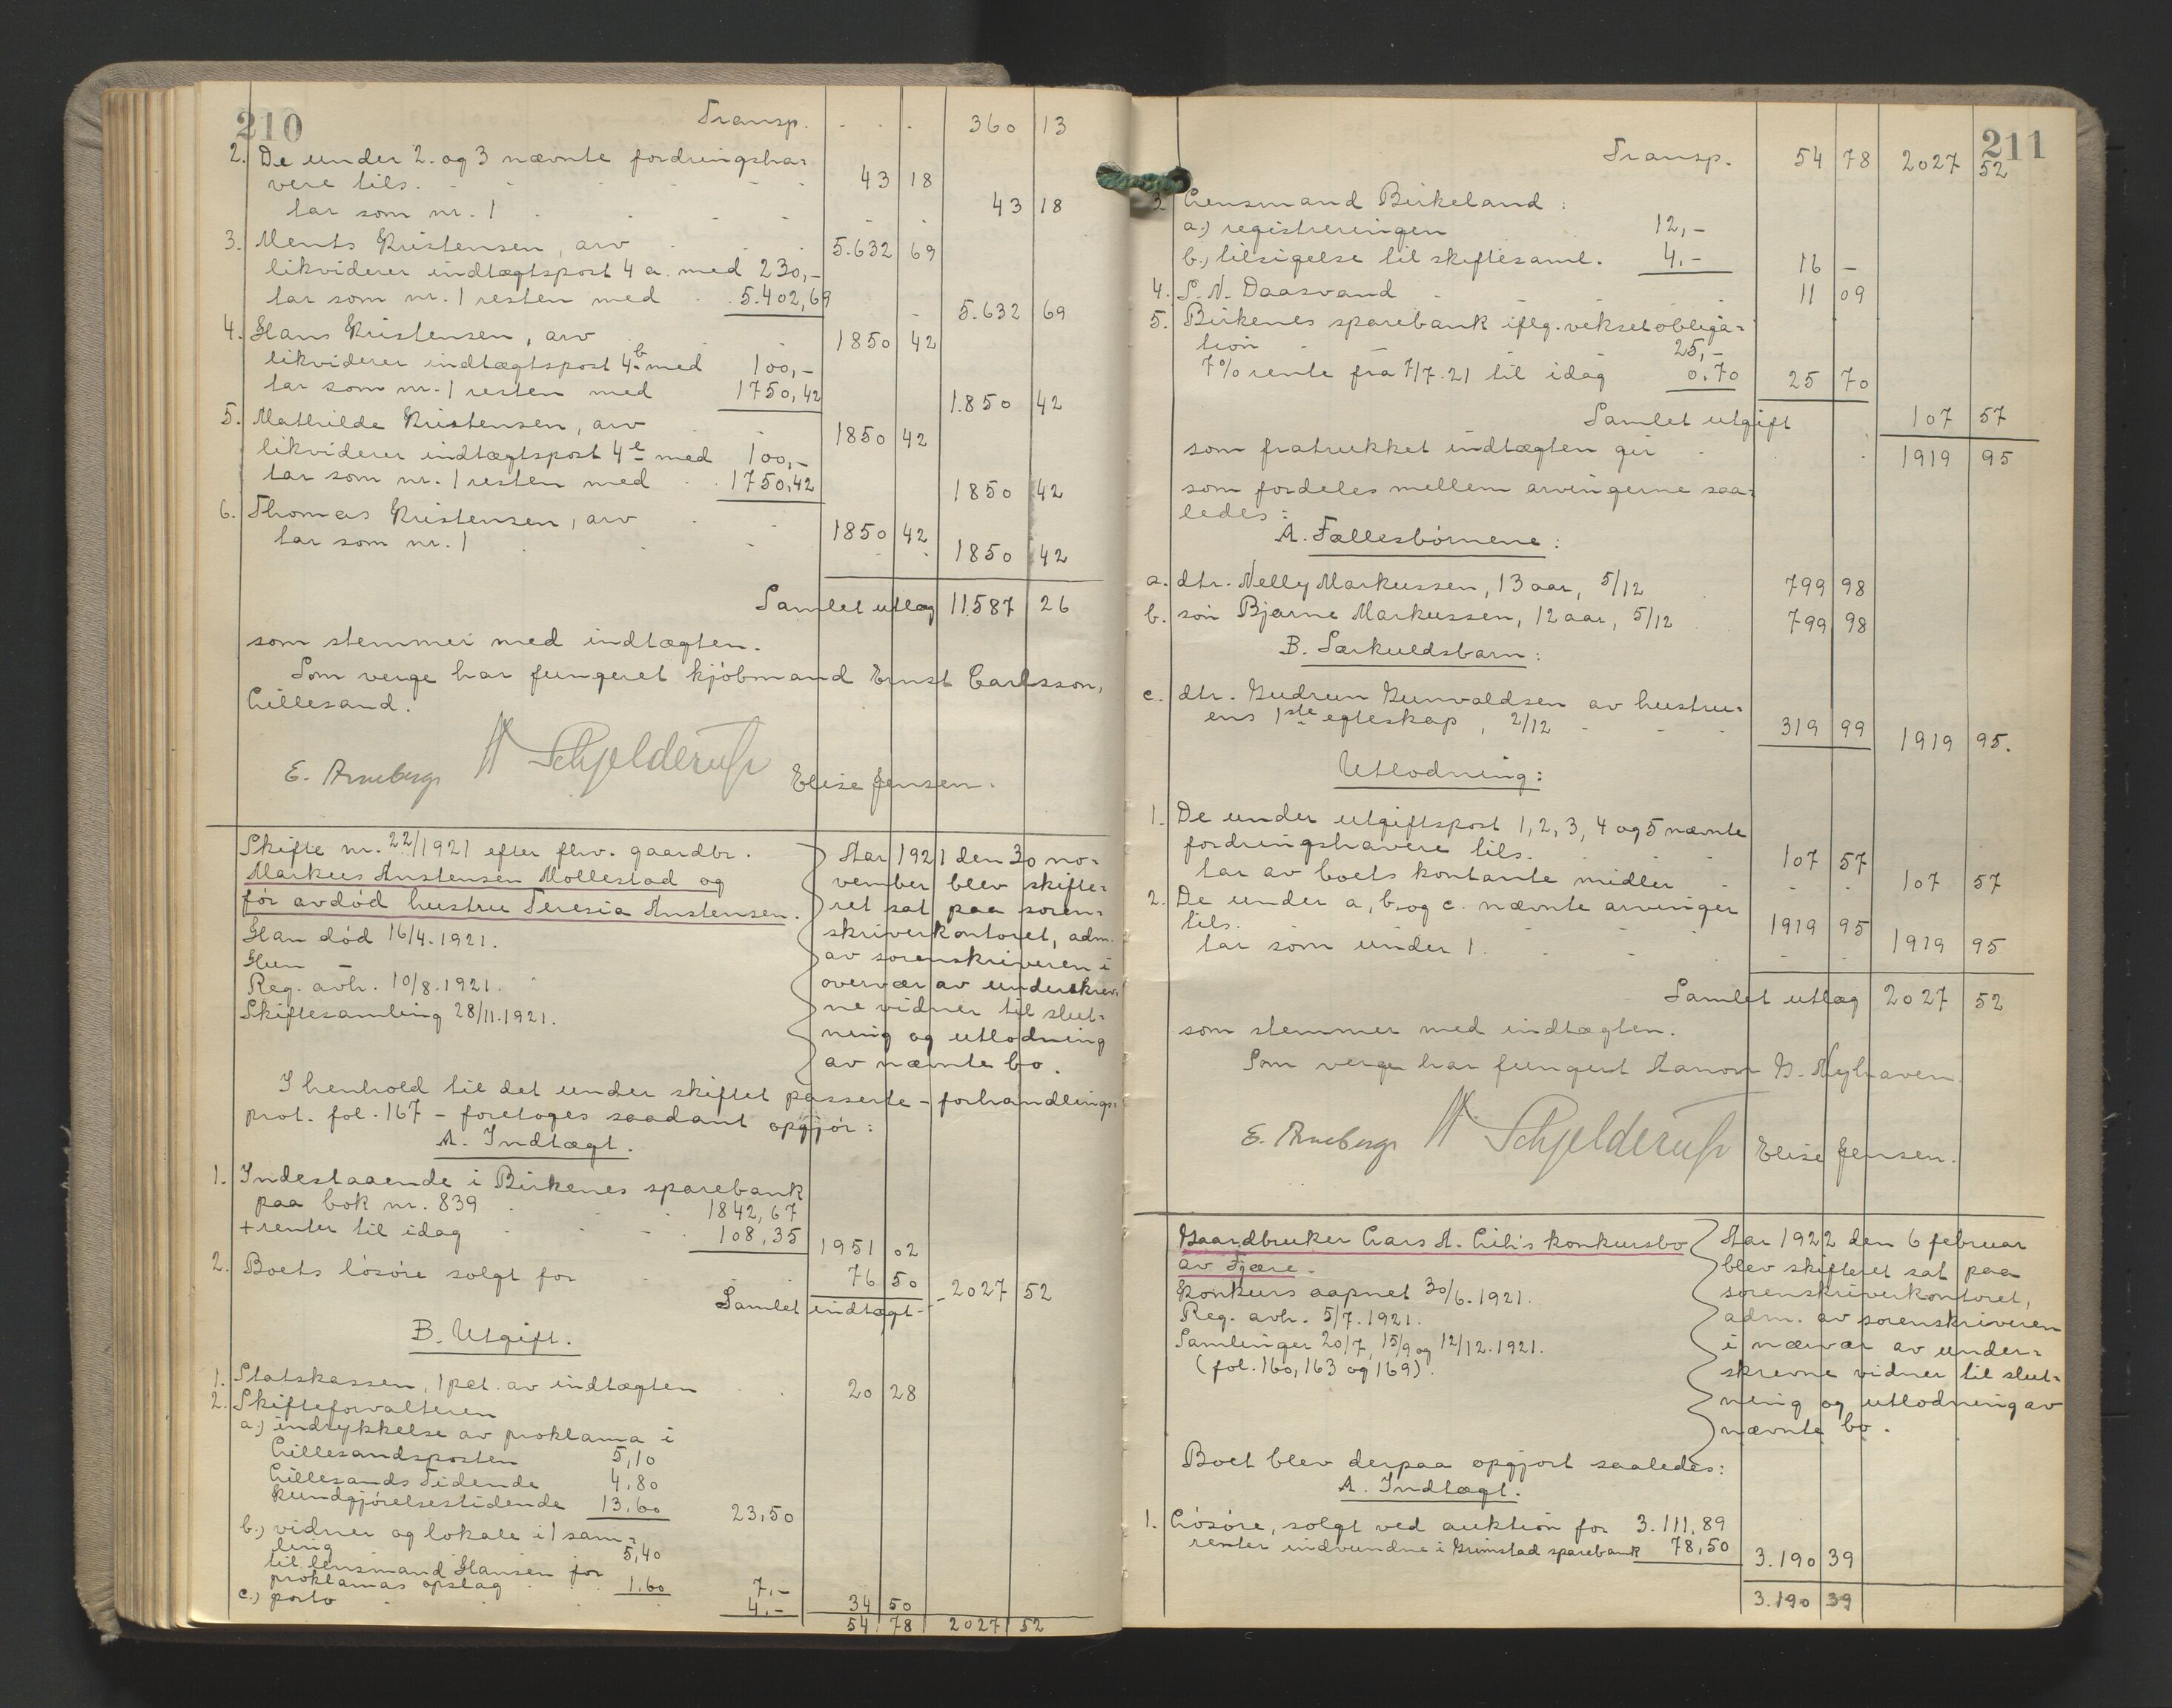 210
Transp. - - - 360 13
2. De under 2. og 3 nævnte fordringsha-
vere tils. - - - - - 43 18
tar som nr. 1 - - - - - 43 18
3. Ments Kristensen, arv - - 5.632 69
likviderer indtægtspost 4 a. med 230,-
tar som nr. 1 resten med 5.402,69 - 5.632 69
4. Hans Kristensen, arv - - 1850 42
likviderer indtægtspost 4 b. med 100,-
tar som nr. 1 resten med 1750,42 1.850 42
5. Mathilde Kristensen, arv - - 1850 42
likviderer indtægtspost 4 c med 100,-
tar som nr. 1 resten med 1750,42 1850 42
6. Thomas Kristensen, arv - - 1850 42
tar som nr. 1 - - - - - 1850 42
Samlet utlæg 11.587 26
som stemmer med indtægten.
Som verge har fungeret kjöbmand Ernst Carlsson,
Lillesand.
E. Arneberg H Schjelderup Elise Jensen.
Skifte nr. 22/1921 efter fhv. gaardbr.
Markus Anstensen Mollestad og
før avdöd hustru Teresia Anstensen.
Han död 16/4.1921.
Hun —
Reg. avh. 10/8.1921.
Skiftesamling 28/11.1921.
Aar 1921 den 30 no-
vember blev skifte-
ret sat paa soren-
skriverkontoret, adm.
av sorenskriveren i
overvær av underskrev-
ne vidner til slut-
ning og utlodning
av nævnte bo.
I henhold til det under skiftet passerte - forhandlings-
prot. fol. 167 - foretoges saadant opgjør:
A. Indtægt.
1. Indestaaende i Birkenes sparebank
paa bok nr. 839 - - - 1842,67
+ renter til idag - - - 108,35 1951 02
2. Boets lösöre solgt for - - 76 50
Samlet indtægt - - 2027 52
B. Utgift.
1. Statskassen, 1 pct. av indtægten - - 20 28
2. Skifteforvalteren
a.) indrykkelse av proklama i
Lillesandsposten 5,10
Lillesands Tidende 4.80
Kundgjörelsestidende 13.60 23,50
b.) vidner og lokale i 1 sam-
ling 5,40
til lensmand Hansen for
proklamas opslag 1.60 7.-
c.) porto - - - 4.- 34 50
54 78 2027 52
211
Transp. 54 78 2027 52
3. Lensmand Birkeland:
a.) registreringen 12,-
b.) tilsigelse til skiftesaml. 4.- 16 -
4. S. N. Daasvand - - - 11 09
5. Birkenes sparebank iflg. vekselobliga-
tion - - - 25,-
7% rente fra 7/7.21 til idag 0.70 25 70
Samlet utgift 107 57
som fratrukket indtægten gir - - 1919 95
som fordeles mellem arvingerne saa-
ledes:
A. Fællesbörnene:
a. dtr. Nelly Markussen, 13 aar, 5/12 799 98
b. sön Bjarne Markussen, 12 aar, 5/12 799 98
B. Særkuldsbarn:
c. dtr. Gudrun Gunvaldsen av hustru-
ens 1ste egteskap, 2/12 - - - 319 99 1919 95.
Utlodning:
1. De under utgiftspost 1, 2, 3, 4 og 5 nævnte
fordringshavere tils. - - - 107 57
tar av boets kontante midler - - - 107 57
2. De under a, b, og c. nævnte arvinger
tils. - - - 1919 95
tar som under 1. - - - 1919 95
Samlet utlæg 2027 52
som stemmer med indtægten.
Som verge har fungert Aanon G. Nyhaven.
E. Arneberg H Schjelderup Elise Jensen.
Gaardbruker Lars A. Lih's konkursbo
av Fjære.
Konkurs aapnet 30/6.1921.
Reg. avh. 5/7.1921.
Samlinger 20/7, 15/9 og 12/12.1921.
(fol. 160, 163 og 169).
Aar 1922 den 6 februar
blev skifteret sat paa
sorenskriverkontoret,
adm. av sorenskriveren
i nærvær av under-
skrevne vidner til slut-
ning og utlodning av
nævnte bo.
Boet blev derpaa opgjort saaledes:
A. Indtægt.
1. Lösöre, solgt ved auktion for 3.111.89
renter indvundne i Grimstad sparebank 78,50 3.190 39
3.190 39